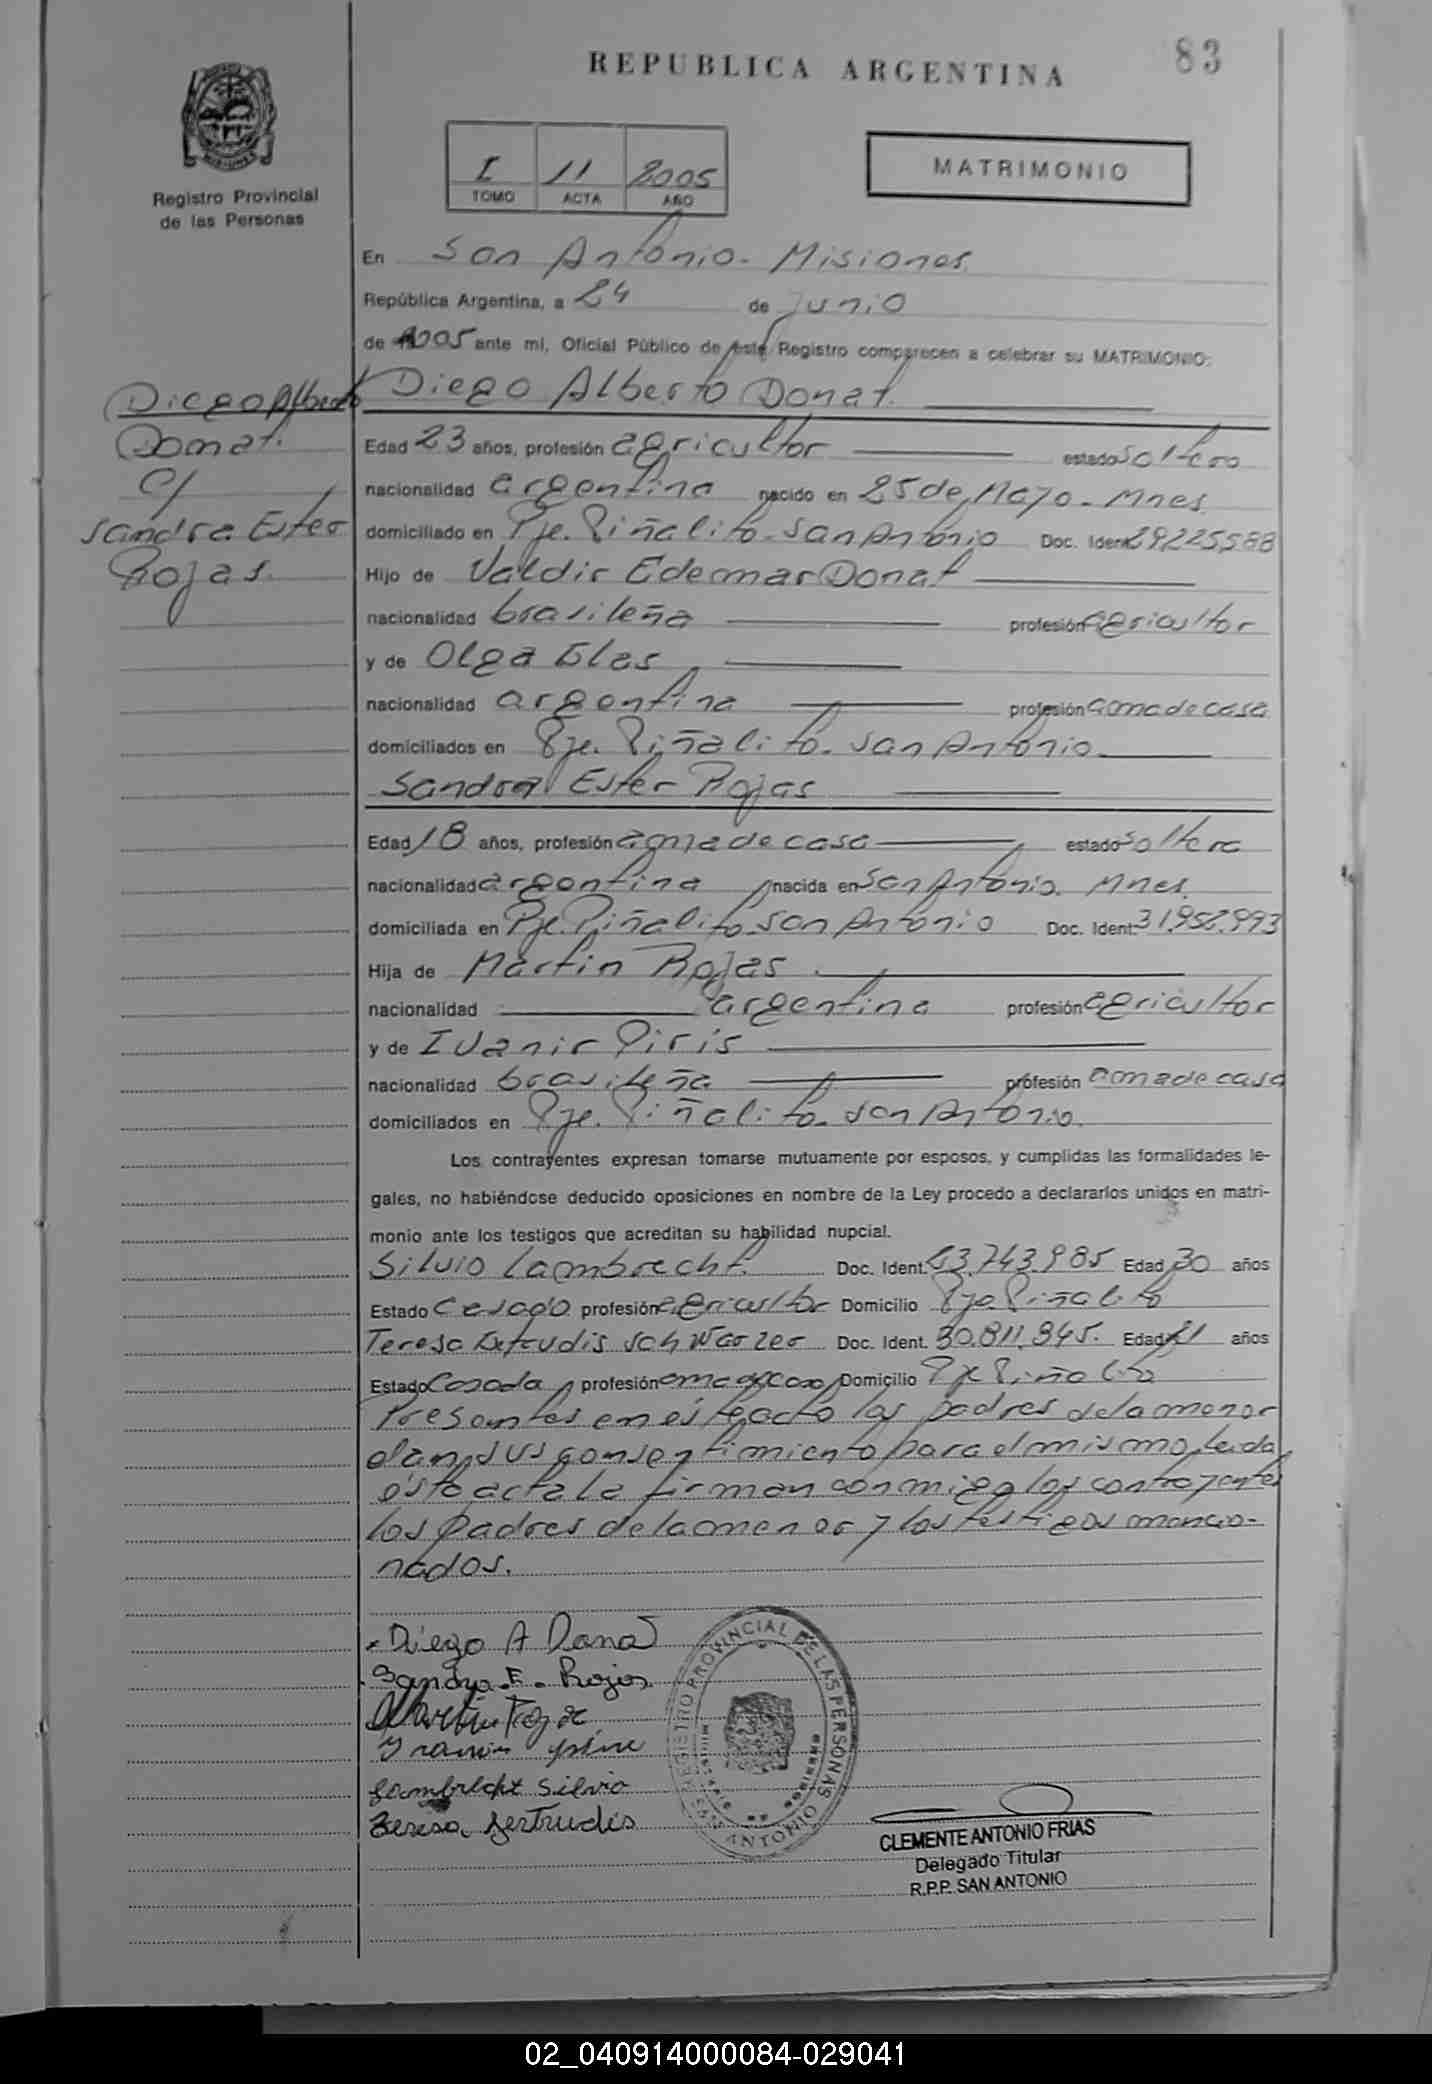 83
REPUBLICA ARGENTINA
I 11 2005
TOMO ACTA AÑO
MATRIMONIO
Registro Provincial
de las Personas
En San Antonio - Misiones
República Argentina, a 24 de Junio
de 2005 ante mí, Oficial Público de este Registro comparecen a celebrar su MATRIMONIO:
Diego Alberto
Donat.
c/
Sandra Ester
Rojas.
Diego Alberto Donat.
Edad 23 años, profesión agricultor estado soltero
nacionalidad argentina nacido en 25 de Mayo - Mnes.
domiciliado en Pje. Piñalito - San Antonio Doc. Ident. 29.225.588
Hijo de Valdir Edemar Donat
nacionalidad brasileña profesión agricultor
y de Olga Glas
nacionalidad argentina profesión ama de casa
domiciliados en Pje. Piñalito - San Antonio
Sandra Ester Rojas
Edad 18 años, profesión ama de casa estado soltera
nacionalidad argentina nacida en San Antonio. Mnes.
domiciliada en Pje. Piñalito San Antonio Doc. Ident. 31.952.993
Hija de Martin Rojas
nacionalidad argentina profesión agricultor
y de Ivanir Piris
nacionalidad brasileña profesión ama de casa
domiciliados en Pje. Piñalito - San Antonio.
Los contrayentes expresan tomarse mutuamente por esposos, y cumplidas las formalidades le-
gales, no habiéndose deducido oposiciones en nombre de la Ley procedo a declararlos unidos en matri-
monio ante los testigos que acreditan su habilidad nupcial.
Silvio Lambrecht. Doc. Ident. 23.743.985 Edad 30 años
Estado Casado profesión agricultor Domicilio Pje. Piñalito
Teresa Schwarzer Doc. Ident. 30.811.345. Edad 21 años
Estado Casada profesión ama de casa Domicilio Pje Piñalito
Presentes en este acto los padres de la menor
dan sus consentimiento para el mismo leida
esta acta la firman conmigo los contrayentes
los padres de la menor y los testigos mencio-
nados.
Diego A Donat
Sandra E. Rojas
Martin Rojas
Lambrecht Silvio
Teresa Gertrudis
REGISTRO PROVINCIAL DE LAS PERSONAS
SAN ANTONIO
CLEMENTE ANTONIO FRIAS
Delegado Titular
R.P.P. SAN ANTONIO
02_040914000084-029041